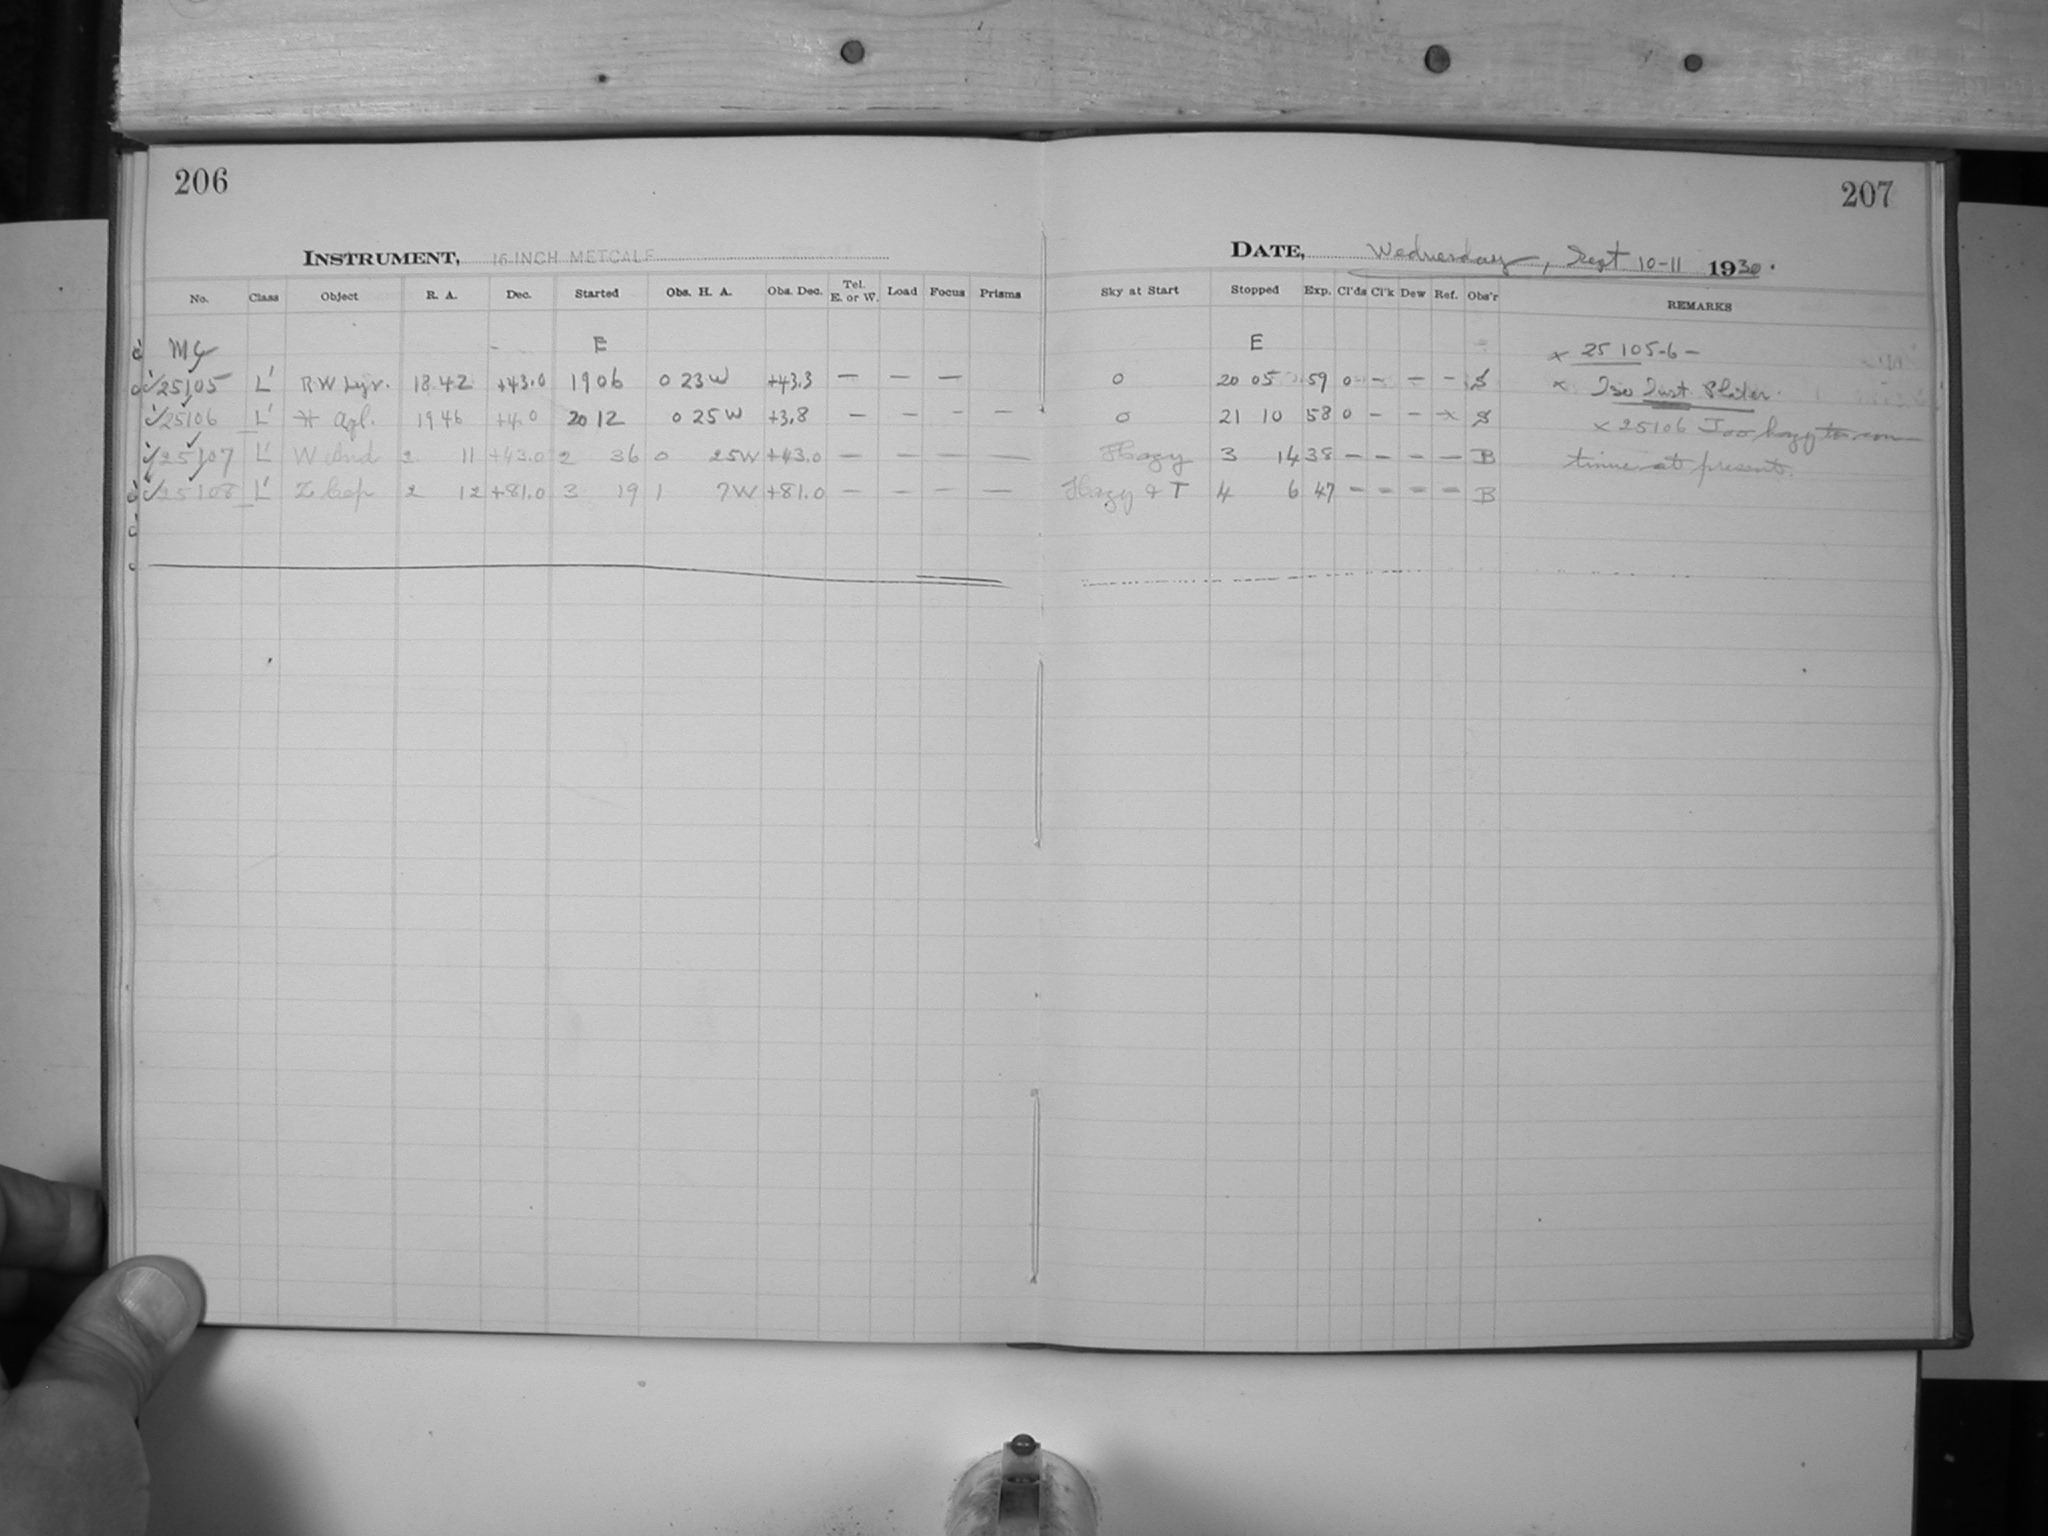 206
207
INSTRUMENT, 16 INCH METCALF
DATE, Wednesday, Sept 10-11 1930.
No. Class Object R. A. Dec. Started Obs. H. A. Obs. Dec. Tel. E. or W. Load Focus Prisms Sky at Start Stopped Exp. Cl'ds Cl'k Dew Ref. Obs'r REMARKS
MC E E × 25 105-6 —
√25105 L' RW Lyr. 18 42 +43.0 19 06 0 23 W +43.3 — — — 0 20 05 59 0 — — — S × Iso Inst. Plates.
√25106 L' Aql. 19 46 +4.0 20 12 0 25 W +3.8 — — — — 0 21 10 58 0 — — × S × 25106 Too hazy to con
√25107 L' W And 2 11 +43.0 2 36 0 25W +43.0 — — — — Hazy 3 14 38 — — — — B tinue at present.
√25108 L' Z Cep 2 12 +81.0 3 19 1 7W +81.0 — — — — Hazy & T 4 6 47 — — — — B